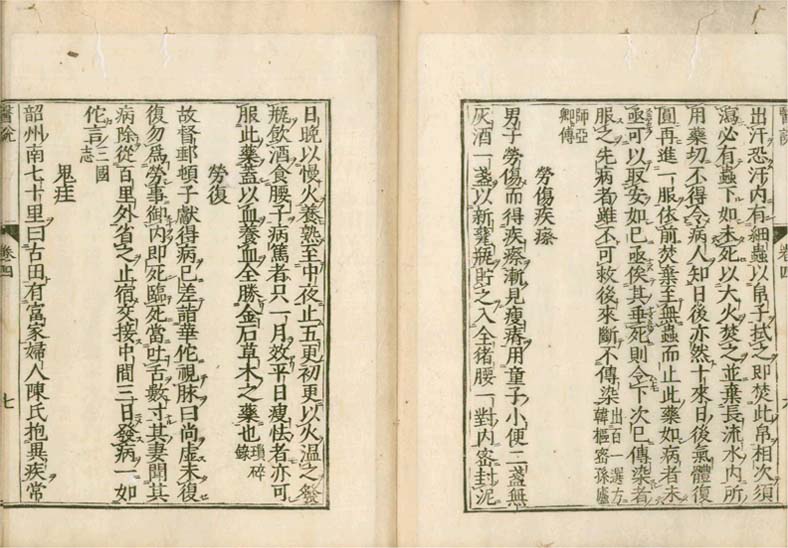 出汗恐汗内有細蟲以帛子拭之即焚此帛相次須
瀉必有蟲下如未死以大火焚之並棄長流水内所
用藥切不得令病人知日後亦然十來日後氣體復
圓再進一服依前焚棄至無蟲而止此藥如病者未
亟可以取安如已亟俟其垂死則令下次已傳染者
服之先病者雖不可救後來斷不傳染出百一選方韓樞密孫廬
師亞卿傳
勞傷疾瘵
男子勞傷而得疾瘵漸見瘦瘠用童子小便二盞無
灰酒一盞以新甕瓶貯之入全猪腰一對内密封泥
日晚以慢火養熟至中夜止五更初更以火温之發
瓶飲酒食腰子病篤者只一月效平日瘦怯者亦可
服此藥蓋以血養血全勝金石草木之藥也瑣碎錄
勞復
故督郵頓子獻得病已差詣華佗視脉曰尚虛未復
復勿爲勞事御内即死臨死當吐舌數寸其妻聞其
病除從百里外省之止宿交接中間三日發病一如
佗言三國志
鬼疰
韶州南七十里曰古田有富家婦人陳氏抱異疾常
醫說 卷四 七